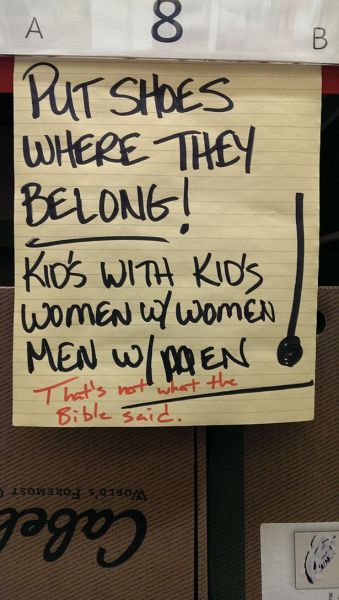 A 8 B
PUT SHOES
WHERE THEY
BELONG!
KID'S WITH KID'S
WOMEN W/ WOMEN
MEN W/ MEN !
That's not what the
Bible said.
WORLD'S FOREMOST
Cabel